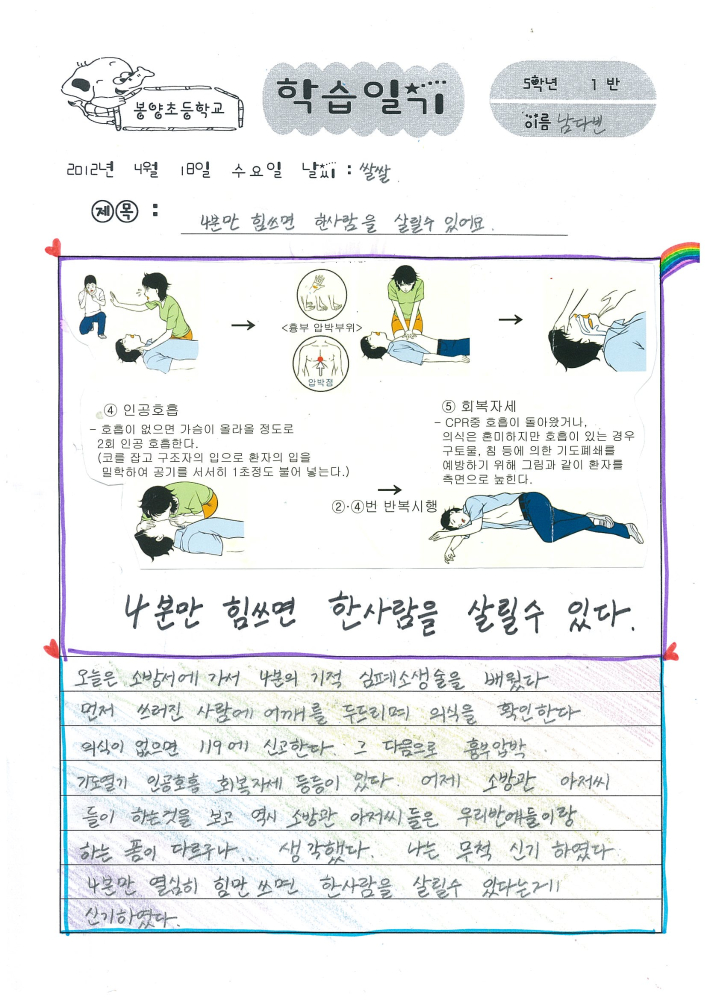 봉양초등학교
학습일기
5학년 1반
이름 남다빈
2012년 4월 18일 수요일 날씨 : 쌀쌀
제목 : 4분만 힘쓰면 한사람을 살릴수 있어요.
<흉부 압박부위>
압박점
④ 인공호흡
- 호흡이 없으면 가슴이 올라올 정도로
2회 인공 호흡한다.
(코를 잡고 구조자의 입으로 환자의 입을
밀착하여 공기를 서서히 1초정도 불어 넣는다.)
⑤ 회복자세
- CPR중 호흡이 돌아왔거나,
의식은 혼미하지만 호흡이 있는 경우
구토물, 침 등에 의한 기도폐쇄를
예방하기 위해 그림과 같이 환자를
측면으로 눞힌다.
②·④번 반복시행
4분만 힘쓰면 한사람을 살릴수 있다.
오늘은 소방서에 가서 4분의 기적 심폐소생술을 배웠다
먼저 쓰러진 사람에 어깨를 두드리며 의식을 확인한다
의식이 없으면 119에 신고한다. 그 다음으로 흉부압박
기도열기 인공호흡 회복자세 등등이 있다. 어제 소방관 아저씨
들이 하는것을 보고 역시 소방관 아저씨들은 우리반애들이랑
하는 폼이 다르구나... 생각했다. 나는 무척 신기 하였다
4분만 열심히 힘만 쓰면 한사람을 살릴수 있다는게
신기하였다.